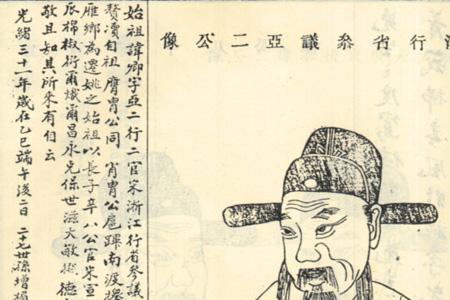 像公二亞議參省行浙
始祖諱卿字亞二行二官宋浙江行省參議
贅瀆自祖膺胄公同 肖胄公扈蹕南渡
雁鄉為遷姚之始祖以長子辛八公官朱宣
辰棉椒衍爾熾爾昌永克保世滋大敬
敬且知其所來有自云
光緒三十一年歲在乙巳端午後二日 二十七世孫增